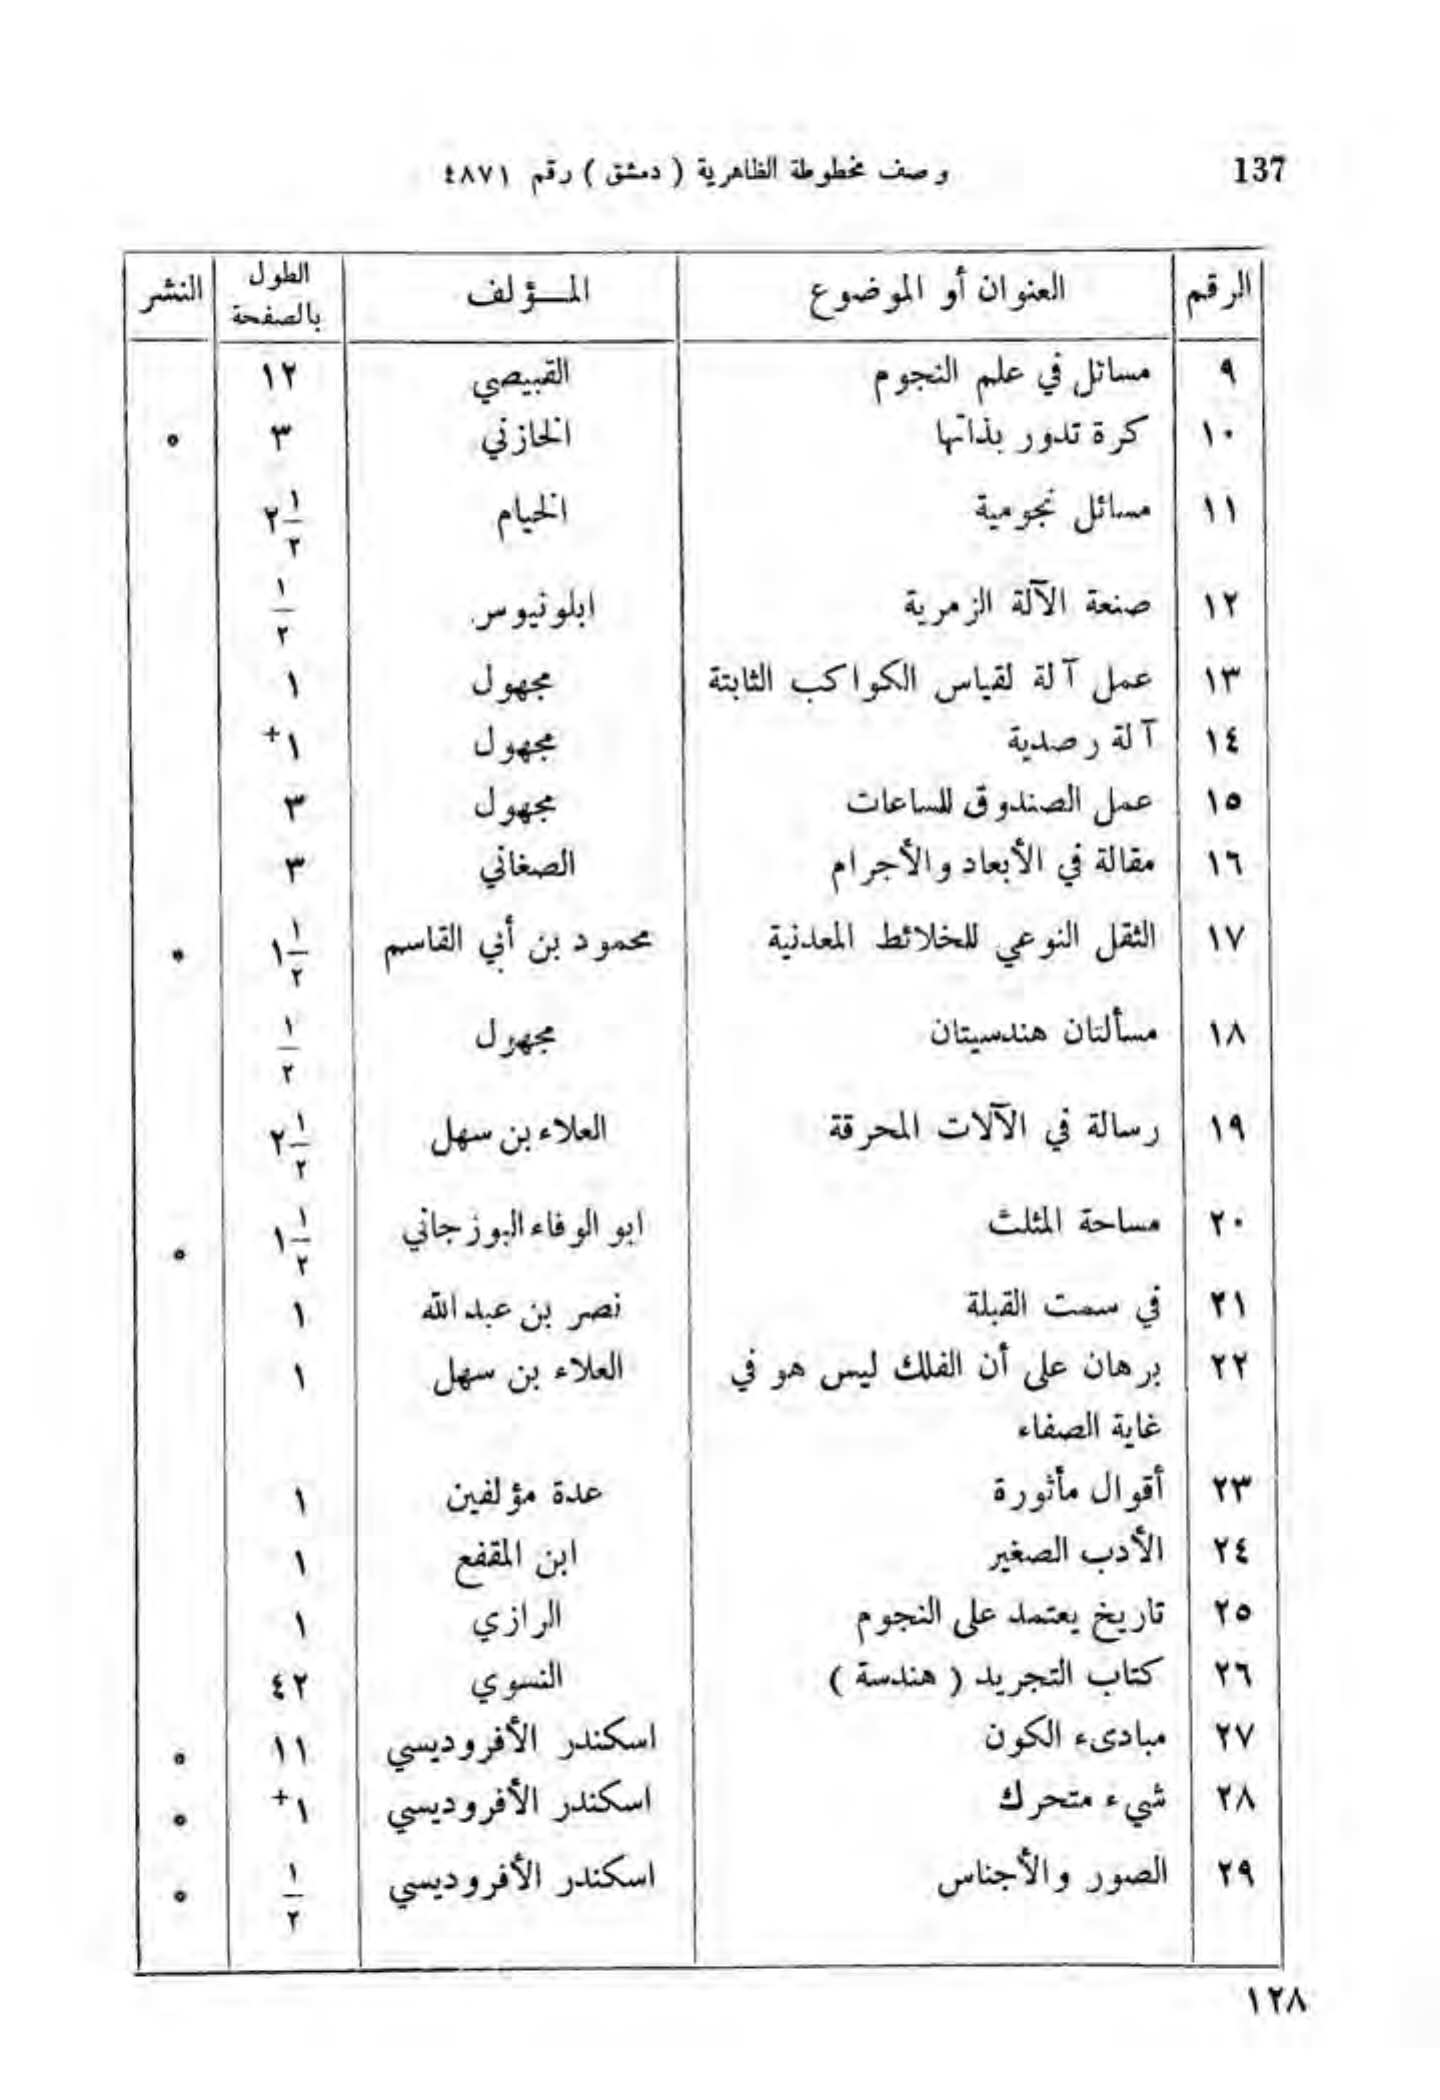 137 وصف مخطوطة الظاهرية ( دمشق ) رقم ٤٨٧١
الرقم | العنوان أو الموضوع | المـــؤلف | الطول بالصفحة | النشر
٩ | مسائل في علم النجوم | القبيصي | ١٢ |
١٠ | كرة تدور بذاتها | الخازني | ٣ | *
١١ | مسائل نجومية | الخيام | ٢ ١/٢ |
١٢ | صنعة الآلة الزمرية | ابلونيوس | ١/٢ |
١٣ | عمل آلة لقياس الكواكب الثابتة | مجهول | ١ |
١٤ | آلة رصدية | مجهول | ١+ |
١٥ | عمل الصندوق للساعات | مجهول | ٣ |
١٦ | مقالة في الأبعاد والأجرام | الصغاني | ٣ |
١٧ | الثقل النوعي للخلائط المعدنية | محمود بن أبي القاسم | ١ ١/٢ | *
١٨ | مسألتان هندسيتان | مجهول | ١/٢ |
١٩ | رسالة في الآلات المحرقة | العلاء بن سهل | ٢ ١/٢ |
٢٠ | مساحة المثلث | ابو الوفاء البوزجاني | ١ ١/٢ | *
٢١ | في سمت القبلة | نصر بن عبدالله | ١ |
٢٢ | برهان على أن الفلك ليس هو في | العلاء بن سهل | ١ |
غاية الصفاء
٢٣ | أقوال مأثورة | عدة مؤلفين | ١ |
٢٤ | الأدب الصغير | ابن المقفع | ١ |
٢٥ | تاريخ يعتمد على النجوم | الرازي | ١ |
٢٦ | كتاب التجريد ( هندسة ) | النسوي | ٤٢ |
٢٧ | مبادىء الكون | اسكندر الأفروديسي | ١١ | *
٢٨ | شيء متحرك | اسكندر الأفروديسي | ١+ | *
٢٩ | الصور والأجناس | اسكندر الأفروديسي | ١/٢ | *
١٢٨